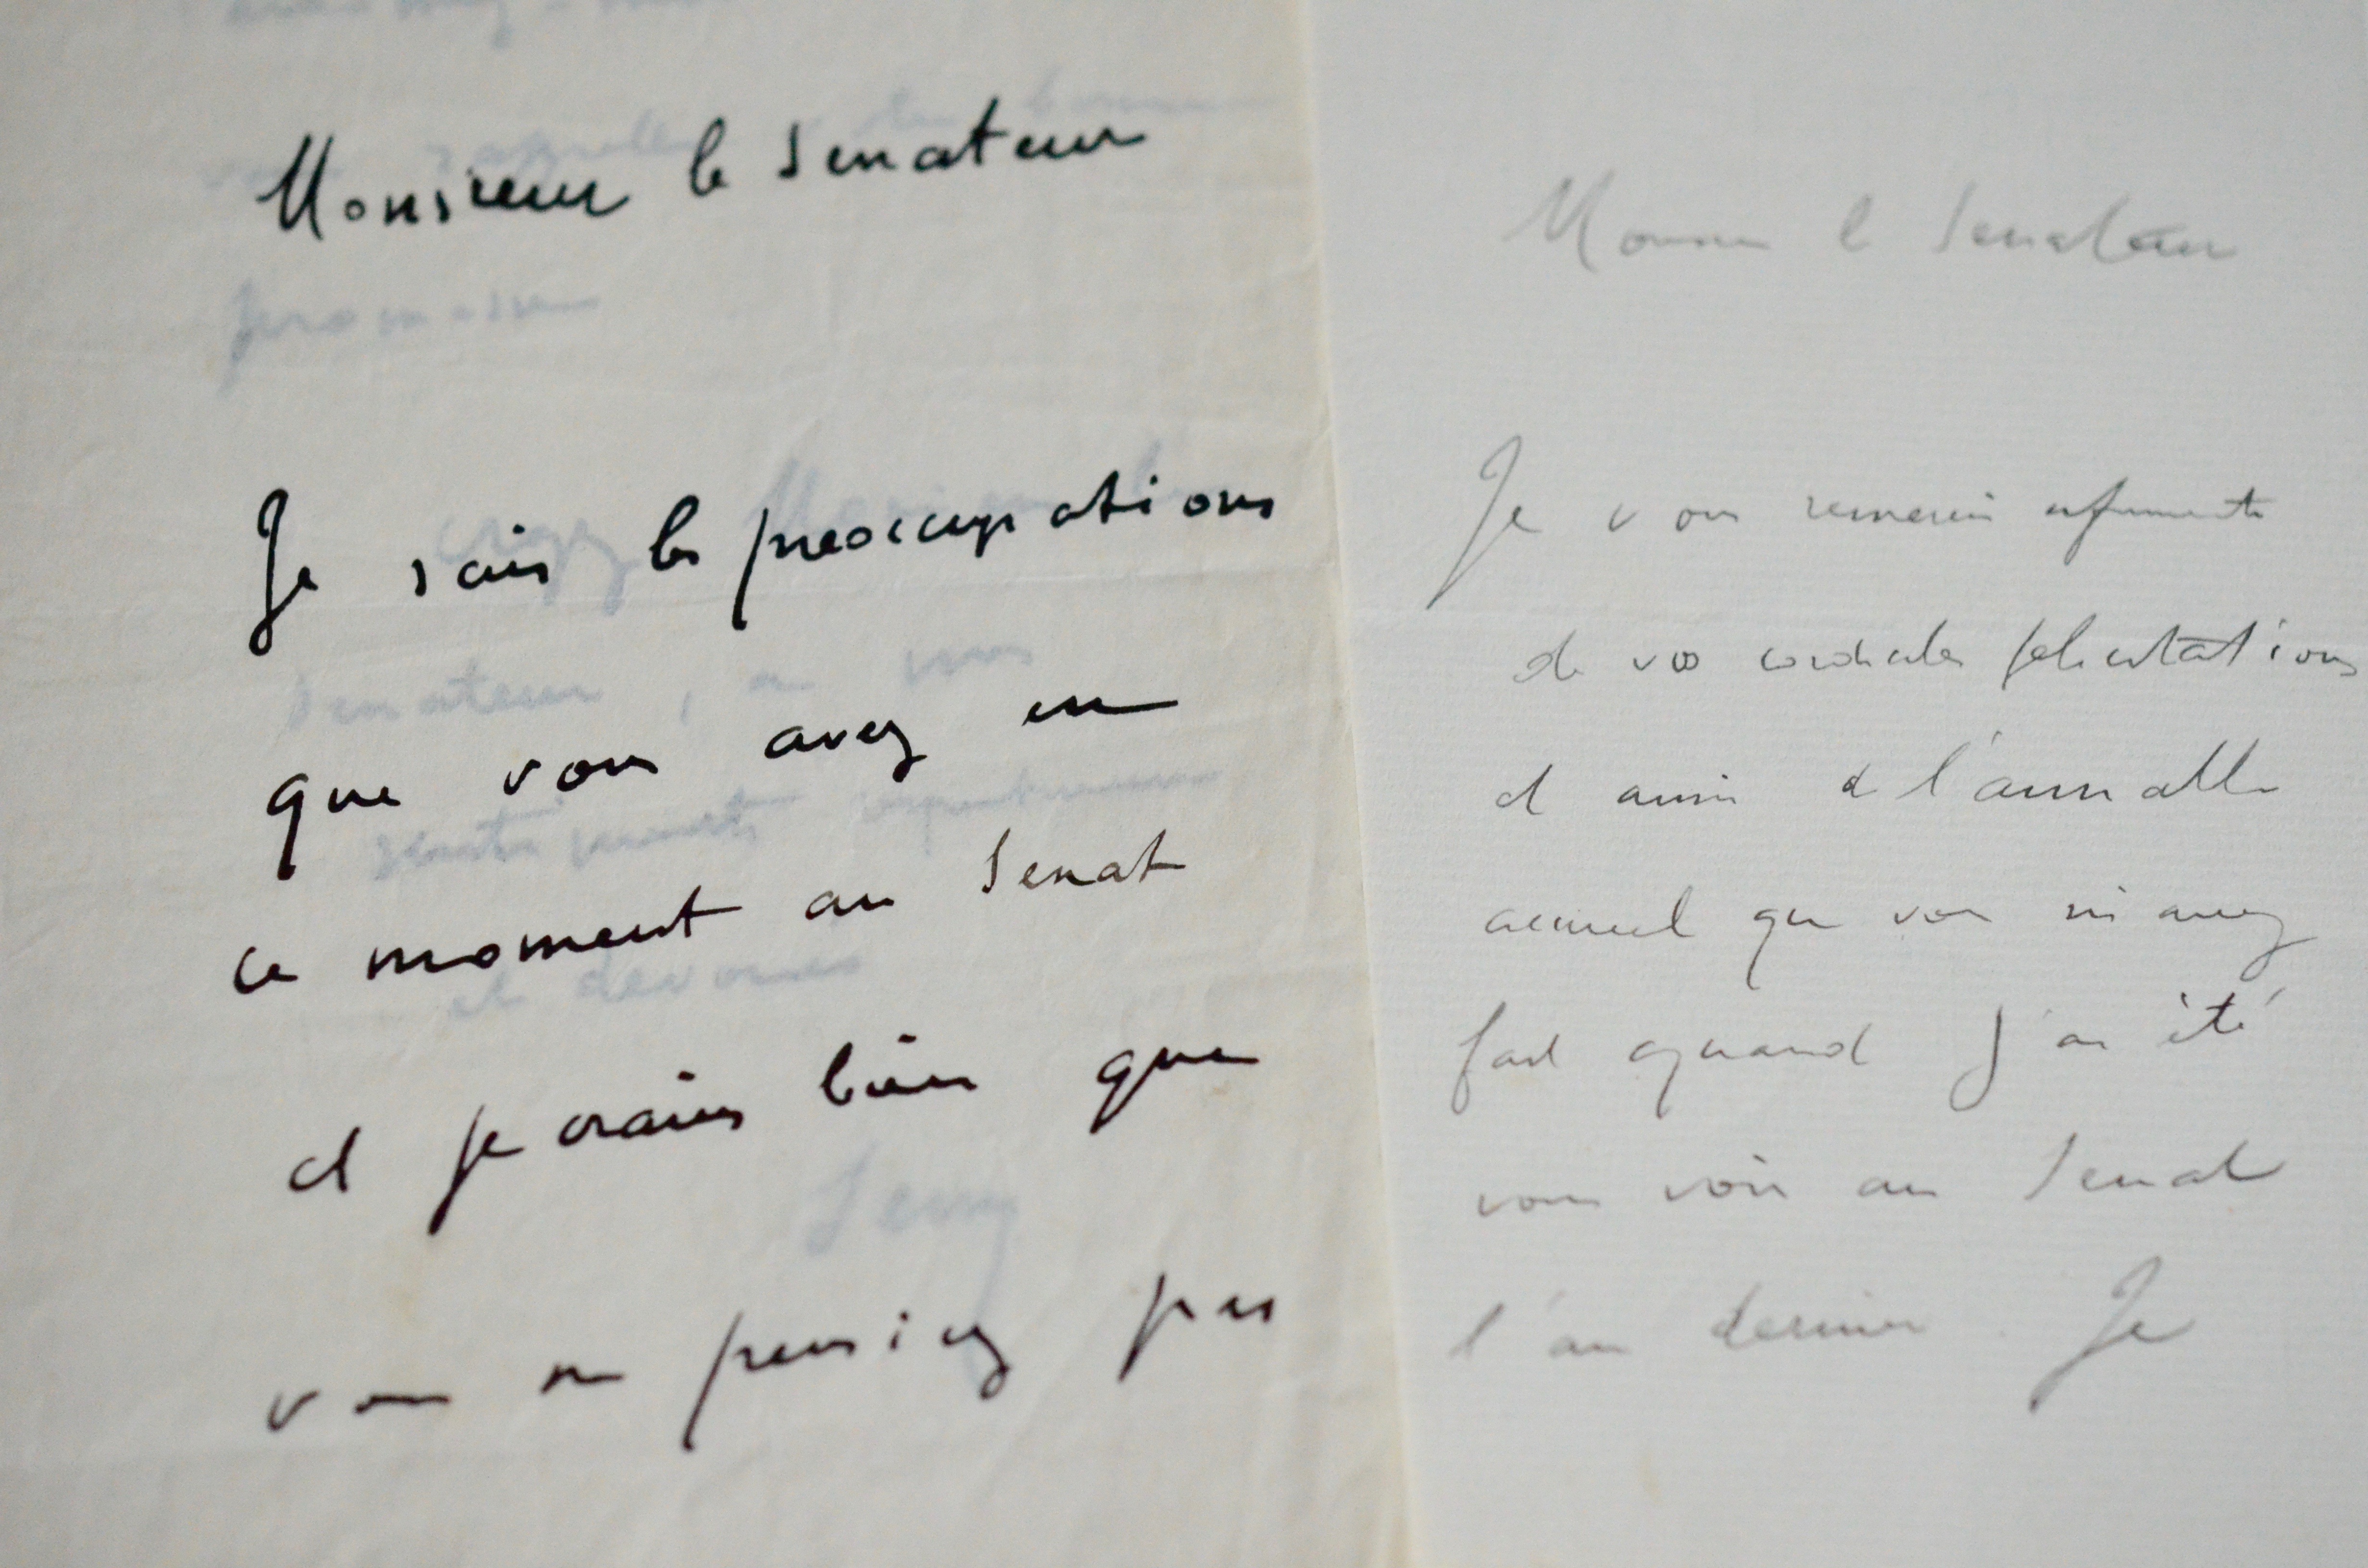 Monsieur le Senateur
Je sais les preoccupations
que vous avez en
ce moment au Senat
et je crains bien que
vous ne pensiez pas
Monsieur le Senateur
Je vous remercie infiniment
de vos cordiales felicitations
et aussi de l'aimable
accueil que vous m'avez
fait quand j'ai été
vous voir au Senat
l'an dernier. Je
promesse
croyez Monsieur le
Senateur, a mes
sentiments
et devoues